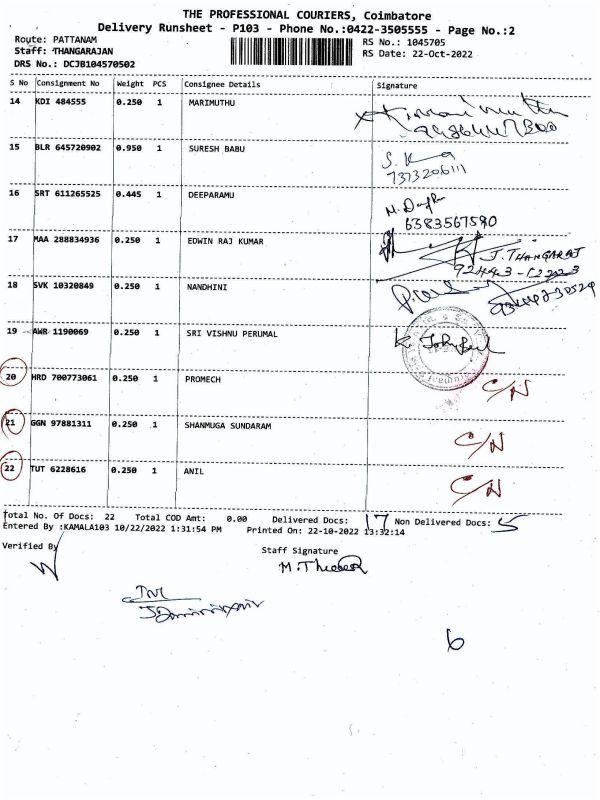 THE PROFESSIONAL COURIERS, Coimbatore
Delivery Runsheet - P103 - Phone No.:0422-3505555 - Page No.:2
Route: PATTANAM
RS No.: 1045705
Staff: THANGARAJAN
RS Date: 22-Oct-2022
DRS No.: DCJB104570502
S No Consignment No Weight PCS Consignee Details Signature
14 KDI 484555 0.250 1 MARIMUTHU
15 BLR 645720902 0.950 1 SURESH BABU
7373206111
16 SRT 611265525 0.445 1 DEEPARAMU
6383567590
17 MAA 288834936 0.250 1 EDWIN RAJ KUMAR
J. THANGARAJ
18 SVK 10320849 0.250 1 NANDHINI
19 AWR 1190069 1 SRI VISHNU PERUMAL
20 HRD 700773061 0.250 1 PROMECH C/N
21 GGN 97881311 0.250 1 SHANMUGA SUNDARAM C/N
22 TUT 6228616 0.250 1 ANIL C/N
Total No. Of Docs: 22 Total COD Amt: 0.00 Delivered Docs: 17 Non Delivered Docs: 5
Entered By :KAMALA103 10/22/2022 1:31:54 PM Printed On: 22-10-2022 13:32:14
Verified By
Staff Signature
6